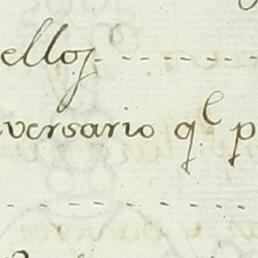 elloz
versario q.l p